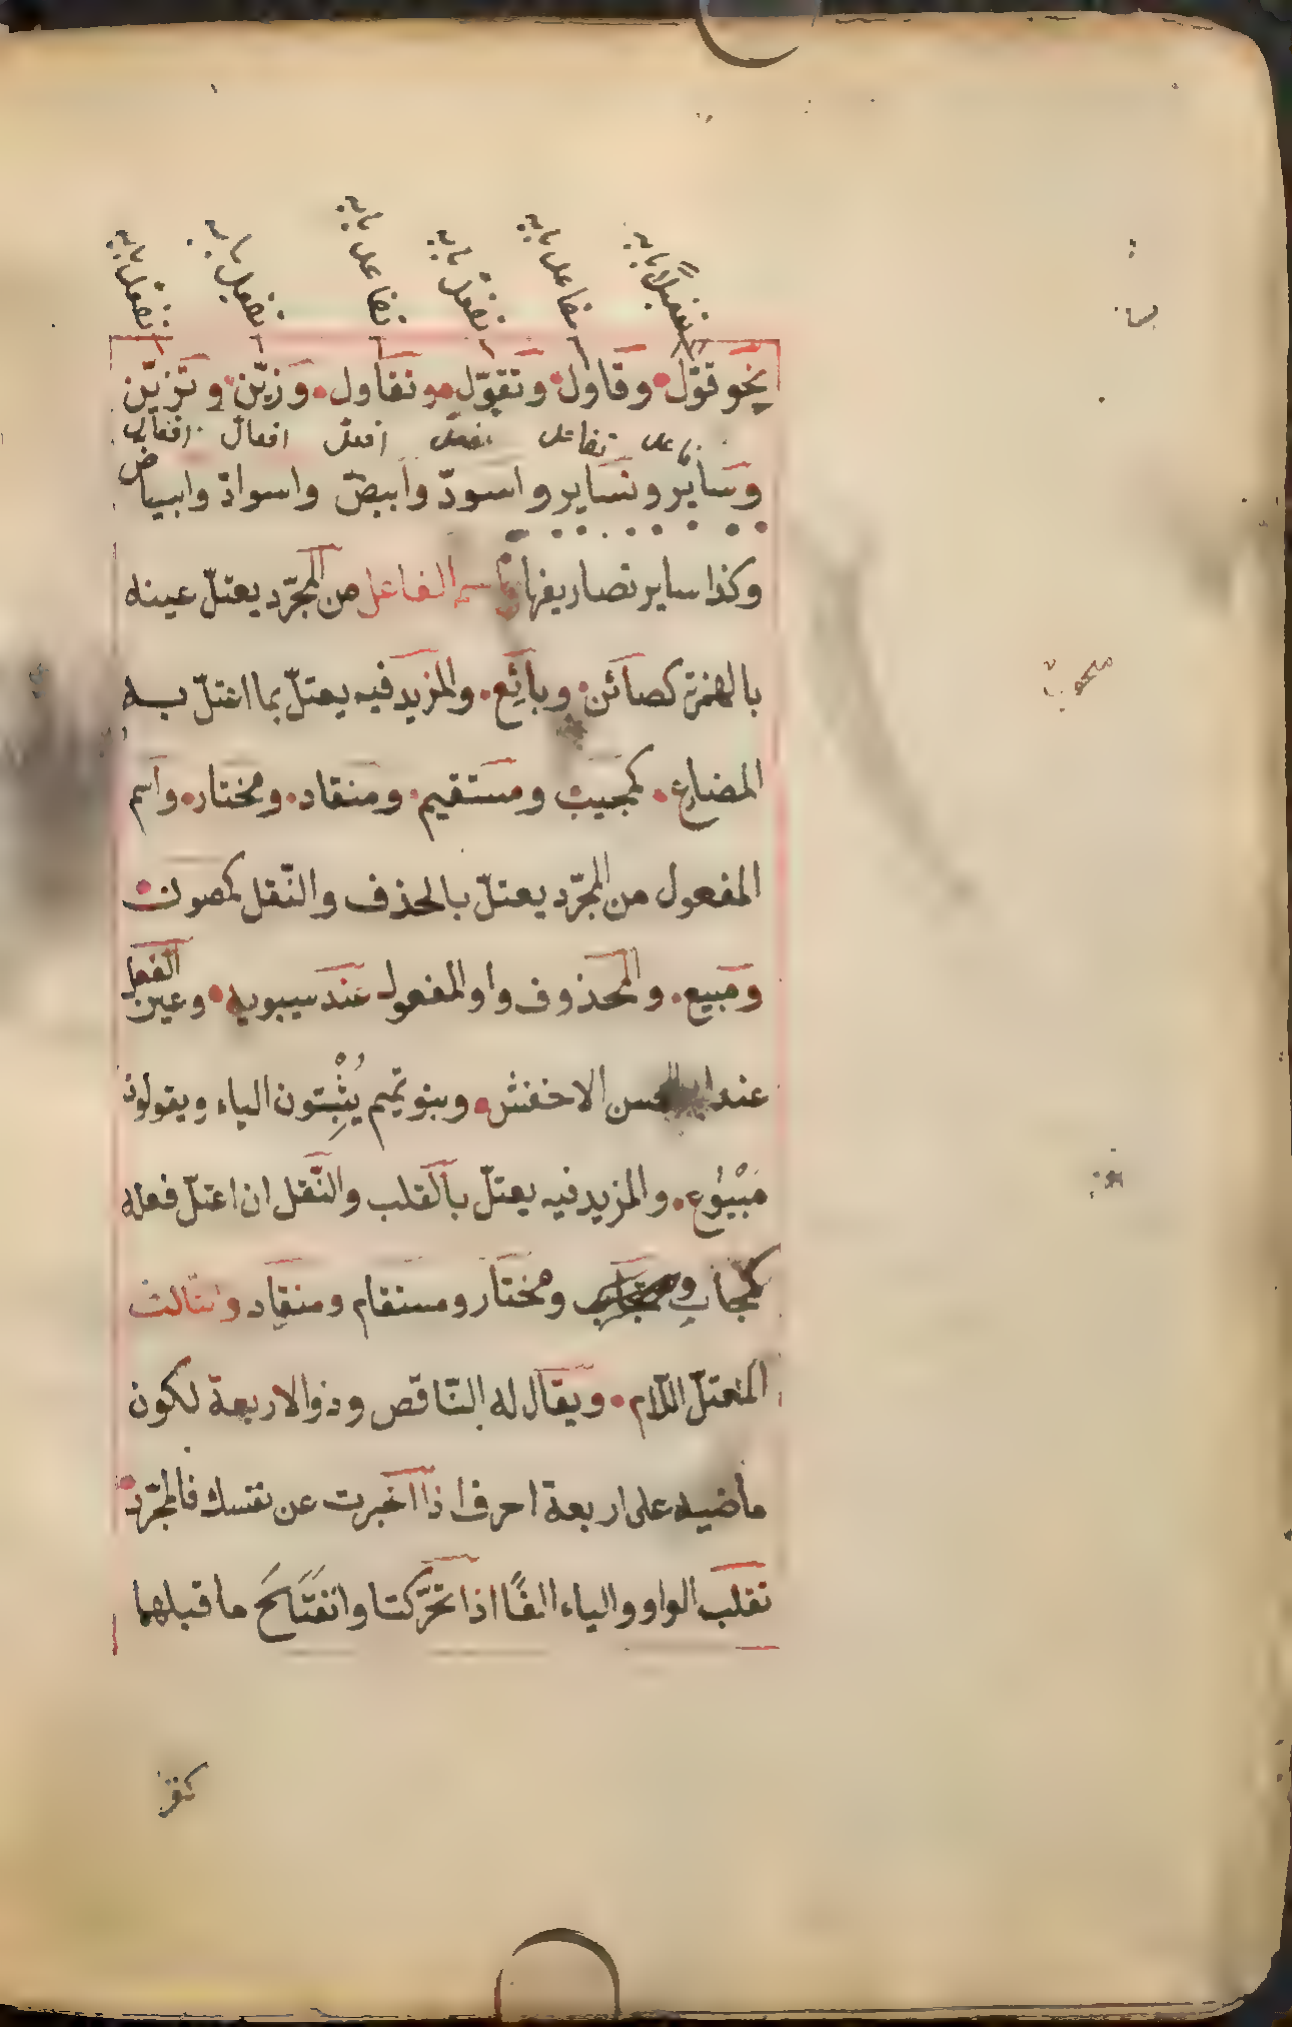 تفعيل بابى
مفاعل بابى
تفعّل بابى
تفاعل بابى
تفعيل بابى
تفعّل بابى
نحو قوّل وقاول وتقوّل وتقاول وزيّن وتزيّن
فاعل تفاعل افعلّ افعلّ افعالّ افعالّ
وساير وتساير واسودّ وابيضّ واسوادّ وابياضّ
وكذا ساير تصاريفها واسم الفاعل من المجرّد يعتلّ عينه
بالهمزة كصائن وبائع والمزيد فيه يعتلّ بما اعتلّ به
المضارع كمجيب ومستقيم ومنقاد ومختار واسم
المفعول من المجرّد يعتلّ بالحذف والنّقل كمصون
ومبيع والمحذوف واو المفعول عند سيبويه وعين الفعل
عند ابى الحسن الاخفش وبنو تميم يُثْبِتون الياء ويقولون
مَبْيُوع والمزيد فيه يعتلّ بالقلب والنّقل ان اعتلّ فعله
كمجاب ومختار ومستقام ومنقاد والثالث
المعتلّ اللّام ويقال له النّاقص وذو الاربعة لكون
ماضيه على اربعة احرف اذا اخبرت عن نفسك فالمجرّد
تقلب الواو والياء الفًا اذا تحرّكتا وانفَتَحَ ما قبلهما